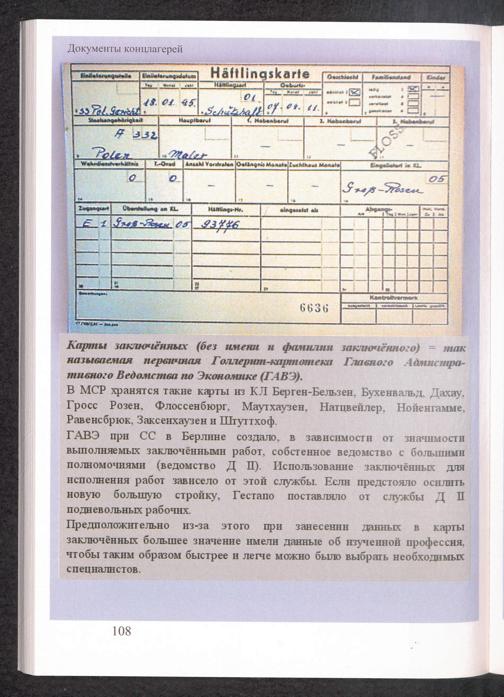 Документы концлагерей
Häftlingskarte
Einlieferungsstelle Einlieferungsdatum Häftlingsart Geburts- Geschlecht Familienstand Kinder
Tag Monat Jahr Tag Monat Jahr
18.01.45. 01. Schutzhaft 07.04.11.
Staatsangehörigkeit Hauptberuf 1. Nebenberuf 2. Nebenberuf 3. Nebenberuf
A 332
FLOSS
Polen Maler
Wehrdienstverhältnis Anzahl Vorstrafen Gefängnis Monate Zuchthaus Monate Eingeliefert in KL.
0 0 05
Groß-Rosen
Zugangsart Überstellung an KL. Häftlings-Nr. eingesetzt als Abgangs-
E 1 Groß-Rosen 05 93776
Bemerkungen: Kontrollvermerk
6636
Карты заключённых (без имени и фамилии заключённого) = так
называемая первичная Голлерит-картотека Главного Администра-
тивного Ведомства по Экономике (ГАВЭ).
В МСР хранятся такие карты из КЛ Берген-Бельзен, Бухенвальд, Дахау,
Гросс Розен, Флоссенбюрг, Маутхаузен, Натцвейлер, Нойенгамме,
Равенсбрюк, Заксенхаузен и Штуттхоф.
ГАВЭ при СС в Берлине создало, в зависимости от значимости
выполняемых заключёнными работ, собстенное ведомство с большими
полномочиями (ведомство Д II). Использование заключённых для
исполнения работ зависело от этой службы. Если предстояло осилить
новую большую стройку, Гестапо поставляло от службы Д II
подневольных рабочих.
Предположительно из-за этого при занесении данных в карты
заключённых большее значение имели данные об изученной профессия,
чтобы таким образом быстрее и легче можно было выбрать необходимых
специалистов.
108